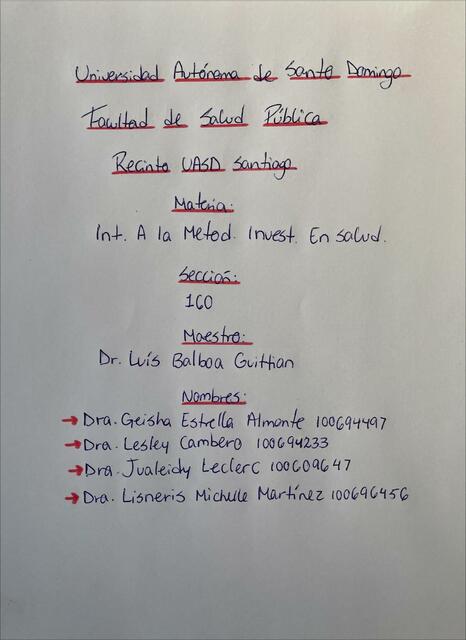 Universidad Autónoma de Santo Domingo
Facultad de Salud Pública
Recinto UASD Santiago
Materia:
Int. A la Metod. Invest. En salud.
Sección:
160
Maestro:
Dr. Luís Balboa Guittian
Nombres:
→ Dra. Geisha Estrella Almonte 100694497
→ Dra. Lesley Cambero 100694233
→ Dra. Jualeidy Leclerc 100609647
→ Dra. Lisneris Michelle Martínez 100696456